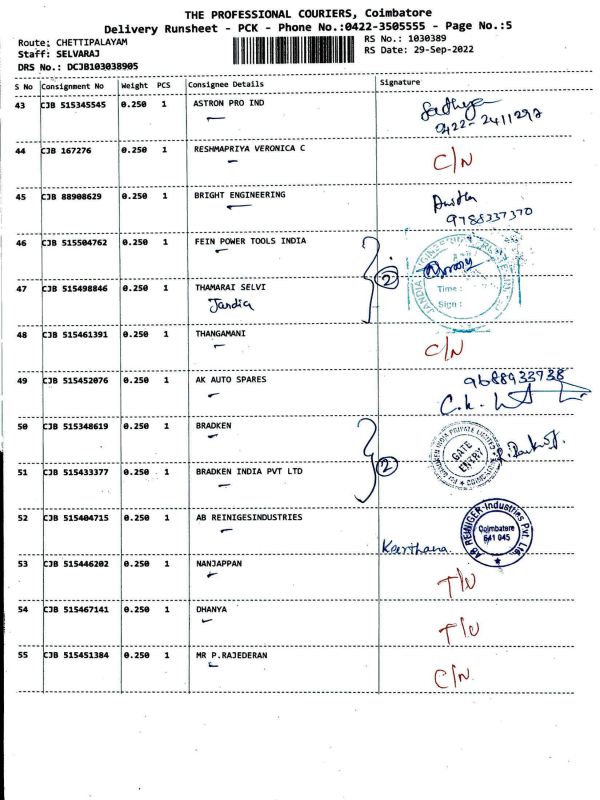 THE PROFESSIONAL COURIERS, Coimbatore
Delivery Runsheet - PCK - Phone No.:0422-3505555 - Page No.:5
Route: CHETTIPALAYAM
RS No.: 1030389
Staff: SELVARAJ
RS Date: 29-Sep-2022
DRS No.: DCJB103038905
S No Consignment No Weight PCS Consignee Details Signature
43 CJB 515345545 0.250 1 ASTRON PRO IND Sathya
0422-2411297
44 CJB 167276 0.250 1 RESHMAPRIYA VERONICA C C/N
45 CJB 88908629 0.250 1 BRIGHT ENGINEERING
9788337370
46 CJB 515504762 0.250 1 FEIN POWER TOOLS INDIA
2
47 CJB 515498846 0.250 1 THAMARAI SELVI Time :
Jandia Sign :
48 CJB 515461391 0.250 1 THANGAMANI C/N
49 CJB 515452076 0.250 1 AK AUTO SPARES 9688933738
C.K.
50 CJB 515348619 0.250 1 BRADKEN
GATE ENTRY
2
51 CJB 515433377 0.250 1 BRADKEN INDIA PVT LTD
52 CJB 515404715 0.250 1 AB REINIGESINDUSTRIES
AB REINIGER-Industries Pvt. Ltd.
Coimbatore
641 045
Keerthana
53 CJB 515446202 0.250 1 NANJAPPAN T/U
54 CJB 515467141 0.250 1 DHANYA T/U
55 CJB 515451384 0.250 1 MR P.RAJEDERAN C/N